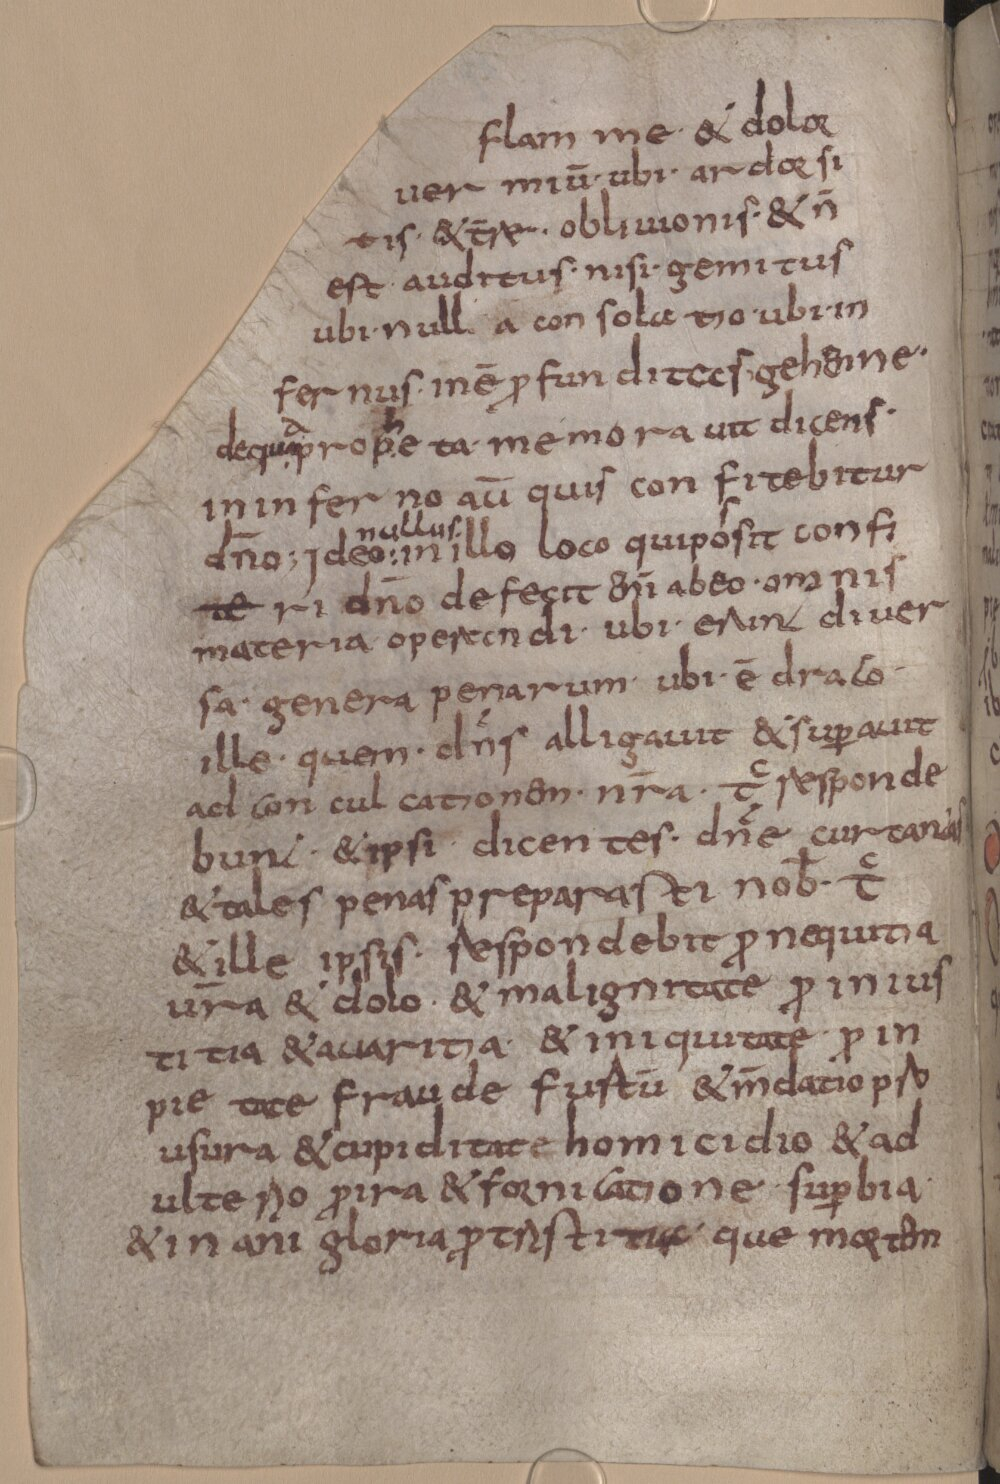 flam me · & dolor
uer miū · ubi · ardor si
tis · & t̄re · obliuionis · & n̄
est auditus · nisi · gemitus
ubi · null a con sola tio · ubi · in
fer nus · in ē ꝓfun ditas · gehenne ·
de qua prophe ta · me mo ra uit dicens ·
in in fer no aū quis con fitebitur
dn̄o ; Ideo : nullus · in illo loco qui possit con fi
te ri dn̄o defecit enī ab eo · omnis
materia operandi · ubi · erunt diuer
sa · genera penarum · ubi · ē draco ·
ille · quem · dn̄s alligauit & suꝑauit
ad con cul cationem · nr̄a · tc̄ responde
bunt · & ipsi · dicentes · dn̄e cur tantas
& tales penas preparasti nob̄ · tc̄
& ille ipsis · respondebit ꝓ nequitia
ur̄a & dolo · & malignitate ꝓ inius
ti tia & auaritia · & iniquitate · ꝓ in
pie tate fraude fustū & m̄datio
usura & cupiditate homicidio & ad
ulterio ꝓ ira & fornicatione · suꝑbia
& in ani gloria ꝓ tristitia · que mortem